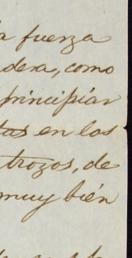 a fuerza
dera, como
principiar
tas en los
trozos, de
muy bién